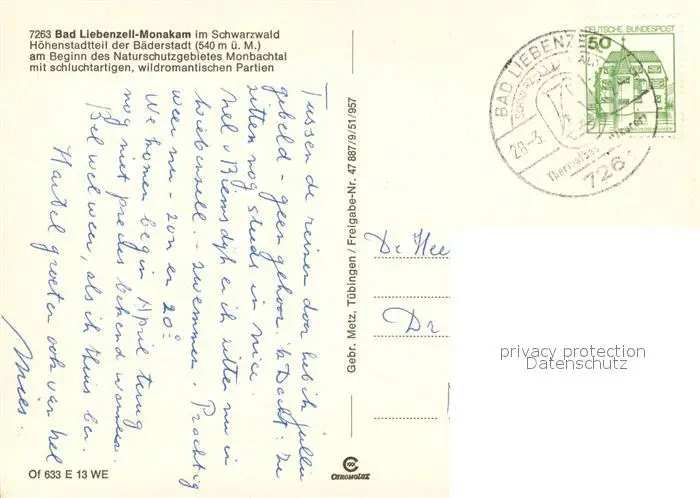 7263 Bad Liebenzell-Monakam im Schwarzwald
Höhenstadtteil der Bäderstadt (540 m ü. M.)
am Beginn des Naturschutzgebietes Monbachtal
mit schluchtartigen, wildromantischen Partien
Tussen de reizen door heb ik jullie
gebeld - geen gehoor. Ik dacht: ze
zitten nog steeds in Nice.
en ik zitten nu in
zwemmen. Prachtig
weer nu - zon en 20°
We komen begin April terug
nog niet precies bekend wanneer.
Bel wel weer, als ik thuis ben.
Hartel groeten ook van Nel
Mies.
Gebr. Metz, Tübingen / Freigabe-Nr. 47 887/9/51/957
DEUTSCHE BUNDESPOST
50
BAD LIEBENZELL
28.-3.
726
De Hee
Dr
privacy protection
Datenschutz
Of 633 E 13 WE
CHROMOLUX